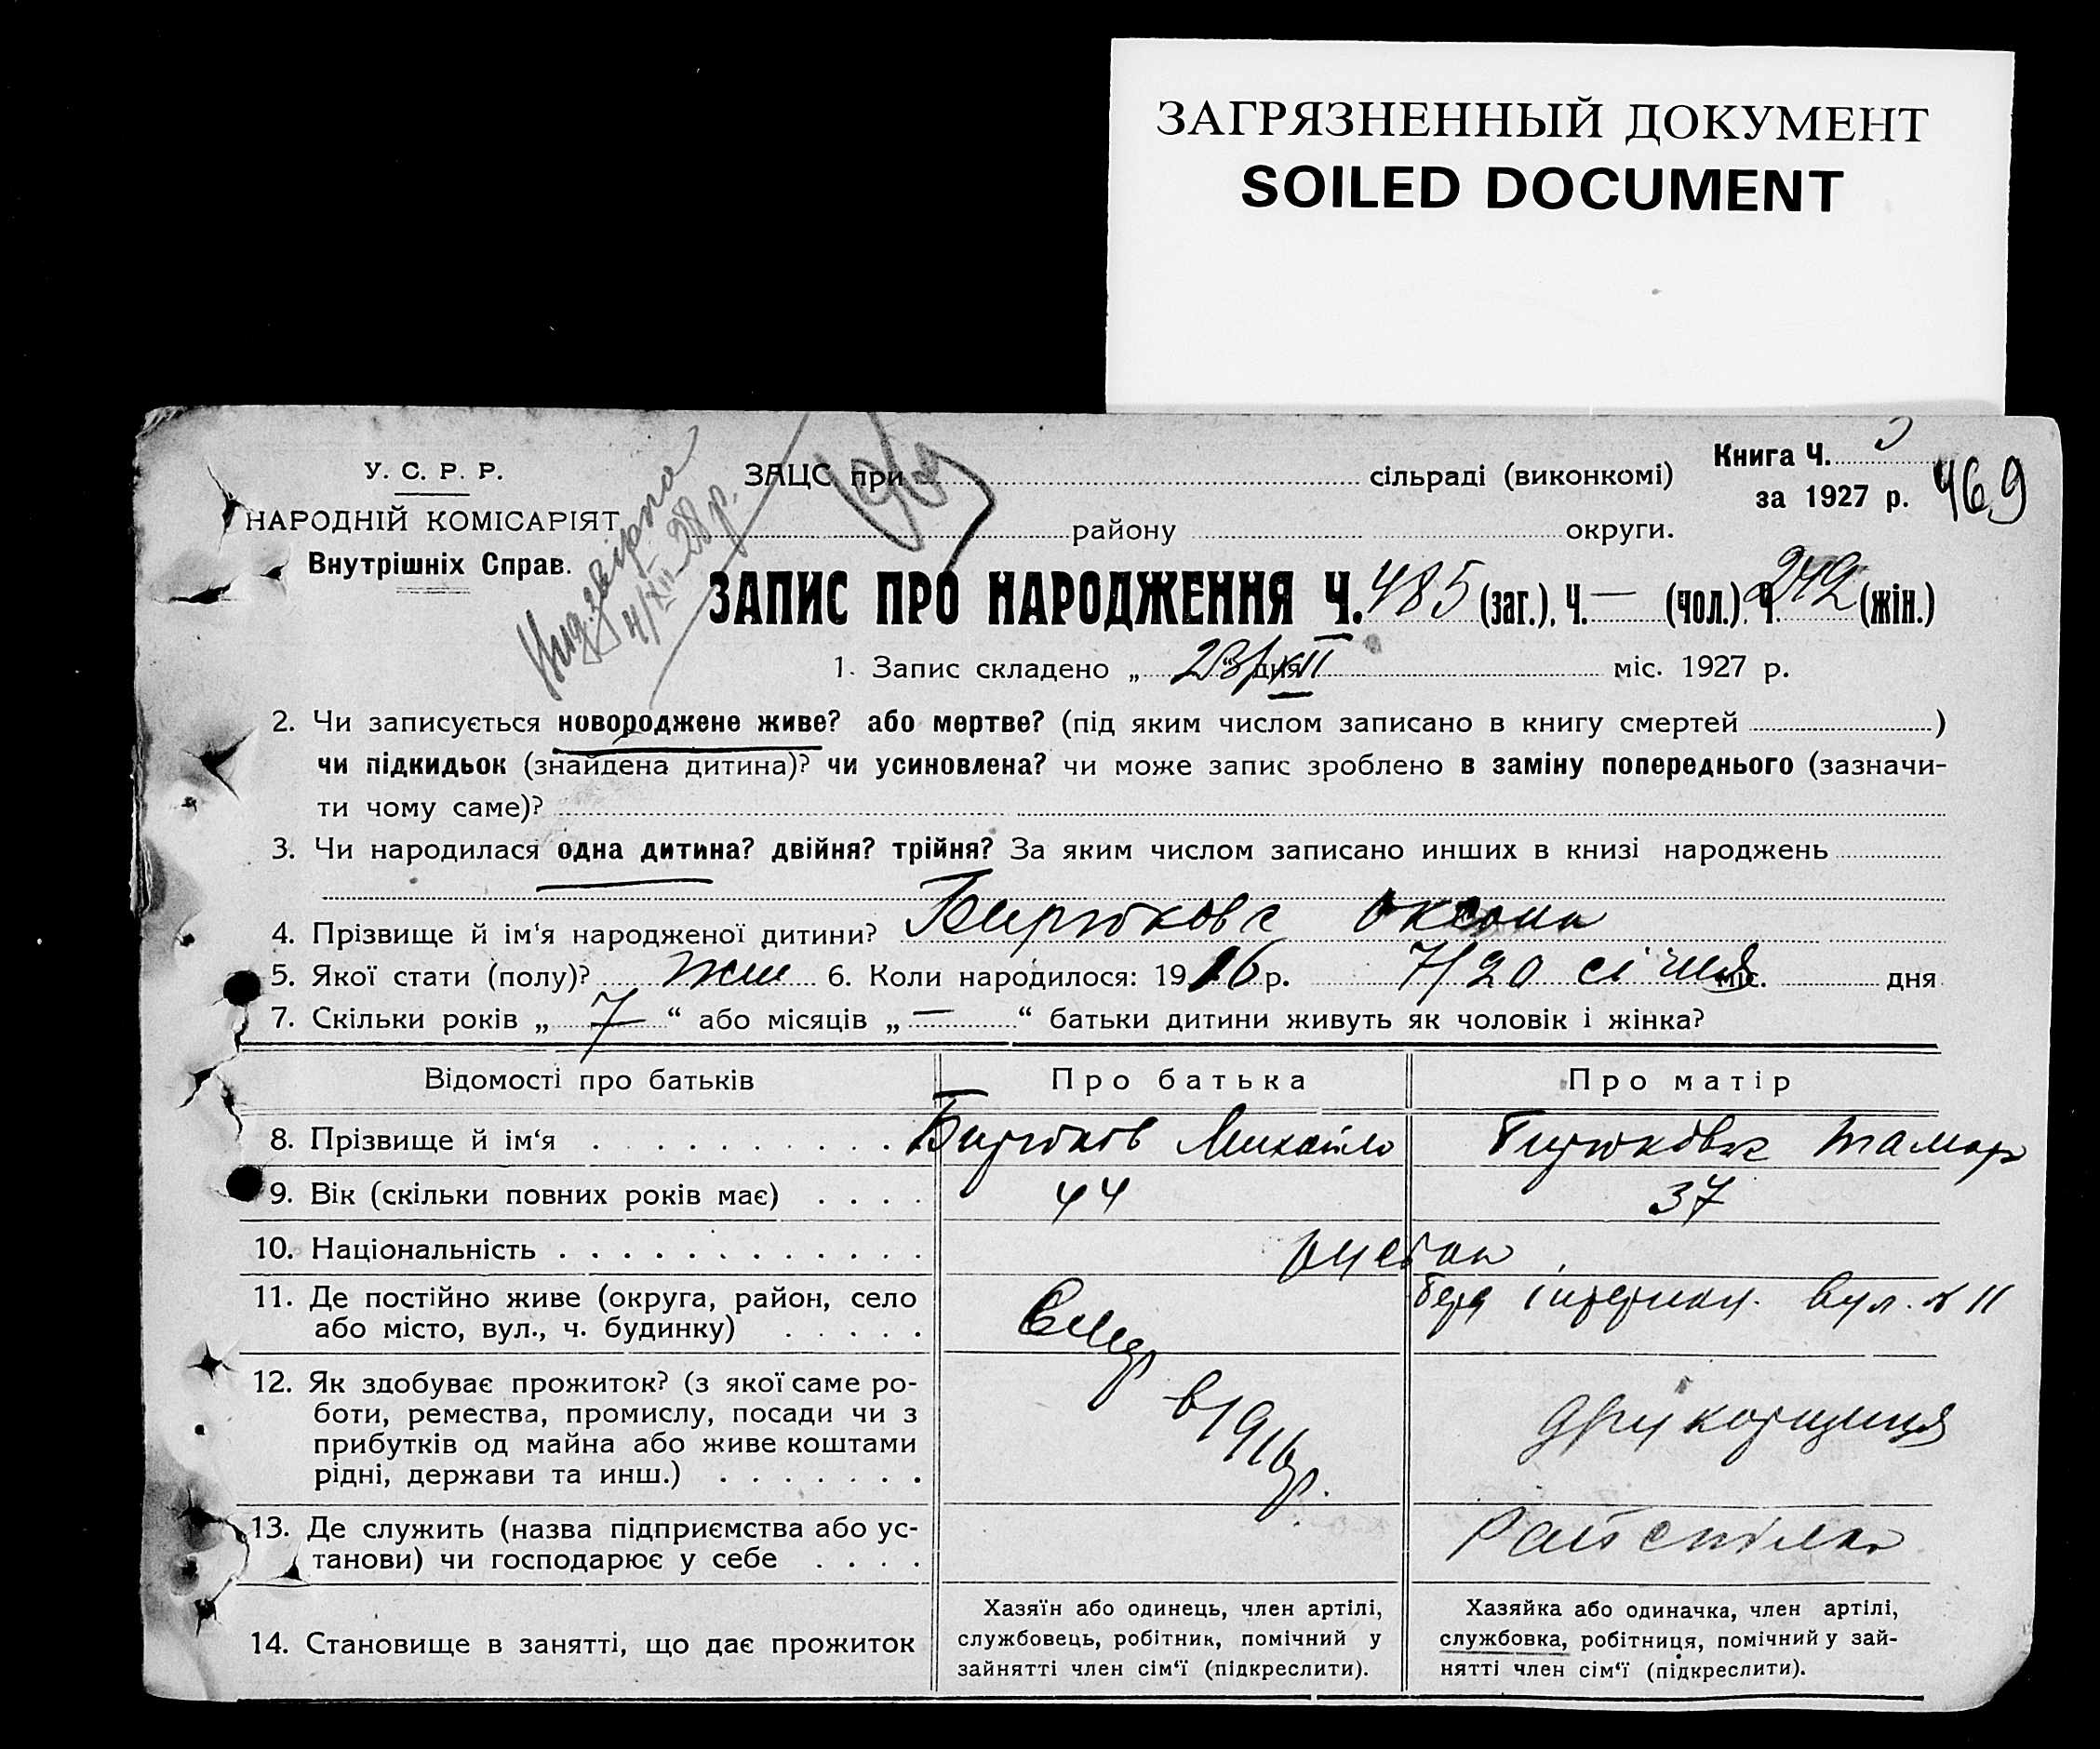 ЗАГРЯЗНЕННЫЙ ДОКУМЕНТ
SOILED DOCUMENT
У. С. Р. Р.
НАРОДНІЙ КОМІСАРІЯТ
Внутрішніх Справ.
4/XII-28 р.
ЗАЦС при сільраді (виконкомі)
району округи.
Книга Ч.
за 1927 р.
469
ЗАПИС ПРО НАРОДЖЕННЯ Ч. 485 (заг.), Ч. — (чол.), Ч. 242 (жін.)
1. Запис складено „ 23/XII дня міс. 1927 р.
2. Чи записується новороджене живе? або мертве? (під яким числом записано в книгу смертей )
чи підкидьок (знайдена дитина)? чи усиновлена? чи може запис зроблено в заміну попереднього (зазначи-
ти чому саме)?
3. Чи народилася одна дитина? двійня? трійня? За яким числом записано инших в книзі народжень
4. Прізвище й ім‘я народженої дитини? Бирюкова Оксана
5. Якої стати (полу)? жін 6. Коли народилося: 1916 р. 7/20 січня міс. дня
7. Скільки років „ 7 “ або місяців „ — “ батьки дитини живуть як чоловік і жінка?
Відомості про батьків Про батька Про матір
8. Прізвище й ім‘я Бирюков Михайло Бирюкова Тамара
9. Вік (скільки повних років має) 44 37
10. Національність
11. Де постійно живе (округа, район, село
або місто, вул., ч. будинку)
Вмер в 1916 р.
вул. № 11
12. Як здобуває прожиток? (з якої саме ро-
боти, ремества, промислу, посади чи з
прибутків од майна або живе коштами
рідні, держави та инш.)
друкарщиця
13. Де служить (назва підприємства або ус-
танови) чи господарює у себе
Райспілка
14. Становище в занятті, що дає прожиток
Хазяїн або одинець, член артілі,
службовець, робітник, помічний у
зайнятті член сім‘ї (підкреслити).
Хазяйка або одиначка, член артілі,
службовка, робітниця, помічний у зай-
нятті член сім‘ї (підкреслити).